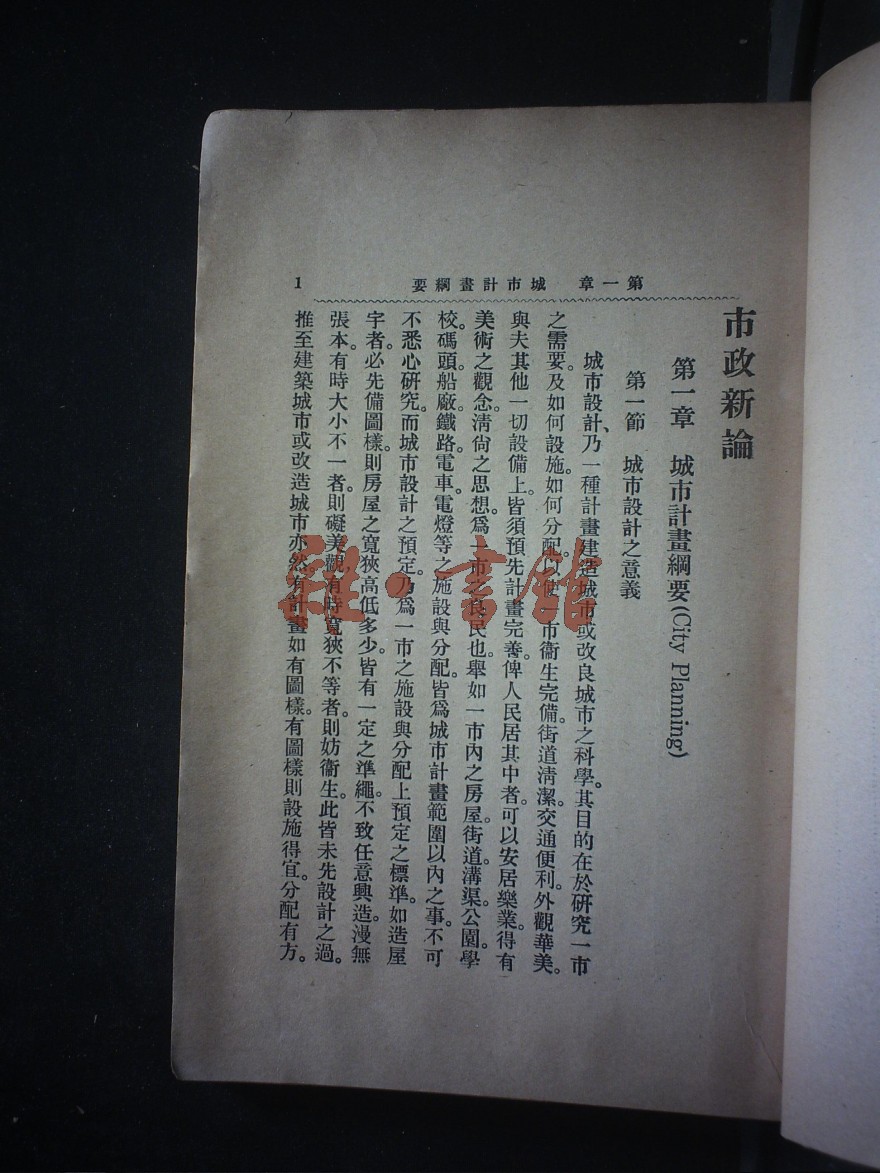 第一章 城市計畫綱要
1
市政新論
第一章 城市計畫綱要(City Planning)
第一節 城市設計之意義
城市設計、乃一種計畫建造城市或改良城市之科學。其目的在於研究一市
之需要。及如何設施。如何分配。以使市衞生完備。街道清潔。交通便利。外觀華美。
與夫其他一切設備上。皆須預先計畫完善。俾人民居其中者。可以安居樂業。得有
美術之觀念。清尙之思想。爲一市之良民也。舉如一市內之房屋。街道。溝渠。公園。學
校。碼頭。船廠。鐵路。電車。電燈等之施設與分配。皆爲城市計畫範圍以內之事。不可
不悉心研究。而城市設計之預定。乃爲一市之施設與分配上預定之標準。如造屋
宇者。必先備圖樣。則房屋之寬狹高低多少。皆有一定之準繩。不致任意興造。漫無
張本。有時大小不一者。則礙美觀。有時寬狹不等者。則妨衞生。此皆未先設計之過。
推至建築城市或改造城市亦然。有計畫如有圖樣。有圖樣則設施得宜。分配有方。
雜·書館